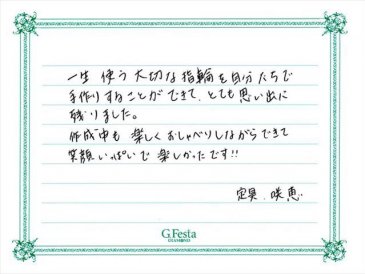 一生使う大切な指輪を自分たちで
手作りすることができて、とても思い出に
残りました。
作成中も楽しくおしゃべりしながらできて
笑顔いっぱいで楽しかったです!!
咲恵
G.Festa
DIAMOND